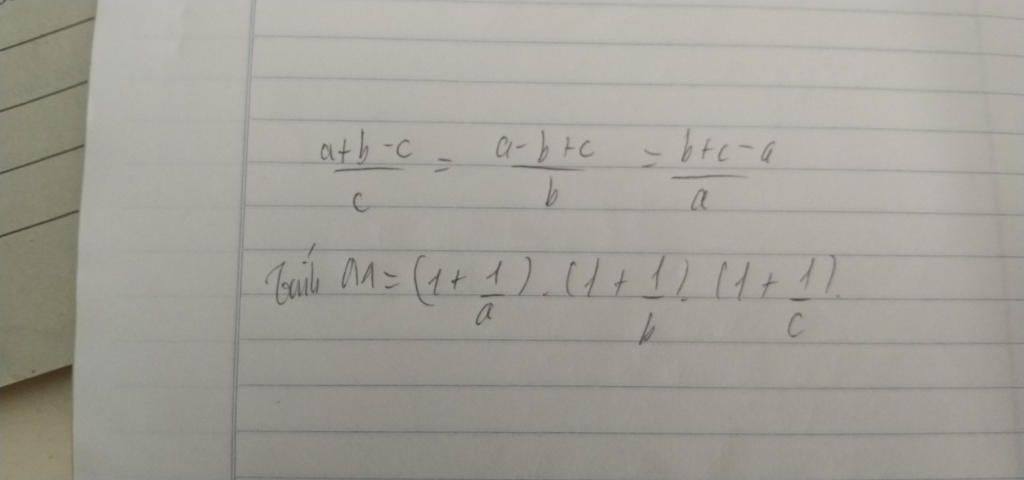 a+b-c/c = a-b+c/b = b+c-a/a
Tính M = (1+1/a).(1+1/b).(1+1/c).